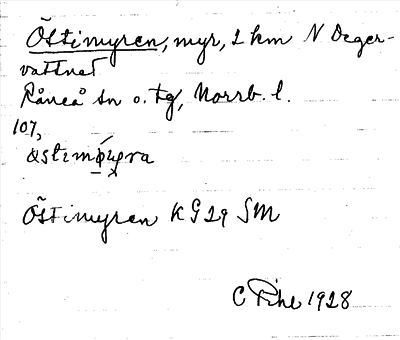 Östimyren, myr, 2 km N Deger-
vattnet
Råneå sn o. tg, Norrb. l.
107,
Östimyren KG 29 SM
C Pihl 1928